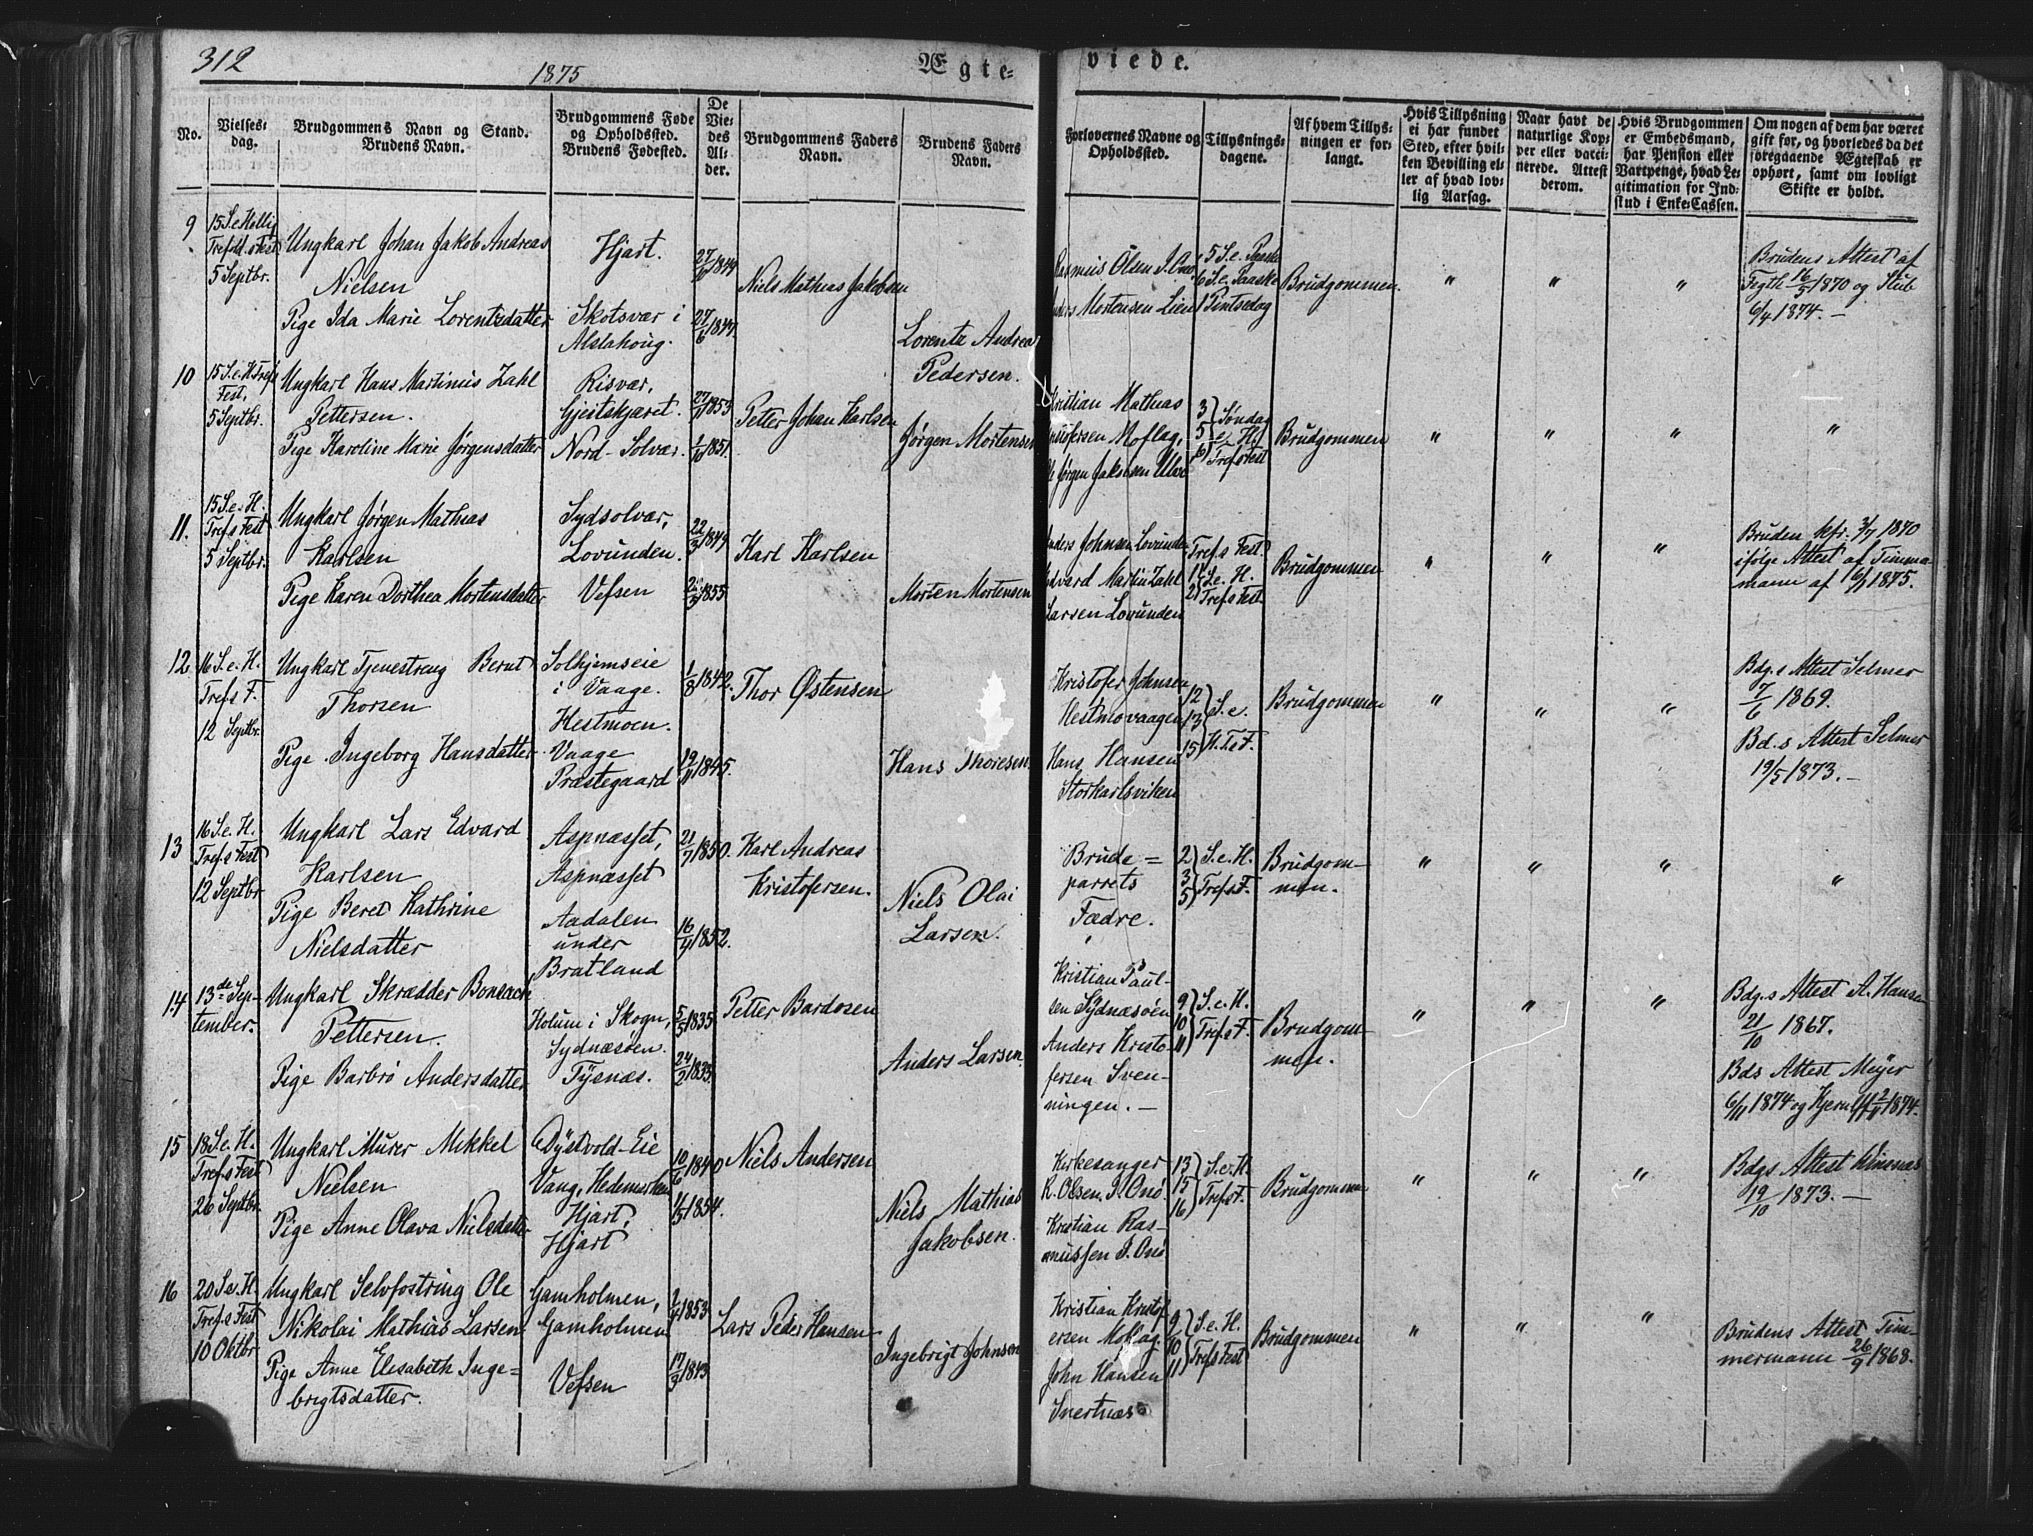 312
1875
Ægte=
viede.
No.
Vielses-
dag.
Brudgommens Navn og Stand.
Brudens Navn.
Brudgommens Føde
og Opholdssted.
Brudens Fødested.
De
Vie-
des
Al-
der.
Brudgommens Faders
Navn.
Brudens Faders
Navn.
Forlovernes Navne og
Opholdssted.
Tillysnings-
dagene.
Af hvem Tillys-
ningen er for-
langt.
Hvis Tillysning
ei har fundet
Sted, efter hvil-
ken Bevilling el-
ler af hvad lov-
lig Aarsag.
Naar havt de
naturlige Kop-
per eller vacci-
nerede. Attest
derom.
Hvis Brudgommen
er Embedsmand,
har Pension eller
Vartpenge, hvad Le-
gitimation for Ind-
skud i Enke-Cassen.
Om nogen af dem har været
gift før, og hvorledes da det
foregaaende Ægteskab er
ophørt, samt om lovligt
Skifte er holdt.
9
15 S. e. Hellig
Tref.
5 Septbr.
Ungkarl Johan Jakob Andreas
Nielsen
Pige Ida Marie Lorentzdatter
Hjart.
Skotsvær i
Alstahoug.
27/6 1844
Niels Mathias Jakobsen
Lorentz Andreas
Pedersen.
Rasmus Olsen
Anders Mortensen Lien
5 S. e. Paaske
6 S. e. Paaske
1 Pintsedag
Brudgommen
" " "
Brudens Attest af
16/5 1870 og Stub
6/4 1874. —
10
15 S. e. H. Tref.
Fest,
5 Septbr.
Ungkarl Hans Martinius Zahl
Pettersen.
Pige Karoline Marie Jørgensdatter
Risvær,
Gjeitskjæret.
Nord-Solvær.
1853
1851.
Petter Johan Karlsen
Jørgen Mortensen
Kristian Mathias
Moflag,
Jørgen Jakobsen
3 5 6 Søndag
e. H.
Tref. s Fest
Brudgommen
" " " "
11.
15 S. e. H.
Tref. s Fest
5 Septbr.
Ungkarl Jørgen Mathias
Karlsen
Pige Karen Dorthea Mortensdatter
Sydsolvær,
Lovunden.
Vefsen
22/3 1849
1855
Karl Karlsen
Morten Mortensen
Anders Johnsen Lovunden
Edvard Martin Zahl
Larsen Lovunden
Tref. s Fest.
1 S. e. H.
2 Tref. s Fest.
Brudgommen
" " "
Bruden kfr. 3/7 1870
ifølge Attest af Timme-
mann af 16/1 1875.
12
16 S. e. H.
Tref. s F.
12 Septbr.
Ungkarl Tjenestreng Bernt
Thorsen
Pige Ingeborg Hansdatter
Solhjemseie
i Vaage.
Hestmoen.
Vaage
Præstegaard
1/8 1842.
19/11 1845.
Thor Østensen
Hans Thoresen
Kristofer Johnsen
Hestmovaagen
Hans Hansen
Storkarlsviken
12 13 15 S. e.
H. T. s F.
Brudgommen
" " "
Bdg. s Attest Selmer
7/6 1869.
Bd. s Attest Selmer
19/5 1873. —
13
16 S. e. H.
Tref. s Fest
12 Septbr
Ungkarl Lars Edvard
Karlsen
Pige Beret Kathrine
Nielsdatter
Aspnæsset,
Aspnæsset
Aadalen
under
Bratland
21/7 1850.
16/4 1852.
Karl Andreas
Kristofersen.
Niels Olai
Larsen.
Brude=
parrets
Fædre.
2 3 5 S. e. H.
Tref. s F.
Brudgom-
men.
" " " "
14
13de Sep-
tember.
Ungkarl Skrædder Bonsach
Pettersen.
Pige Barbro Andersdatter
Holum i Skogn,
Sydnæsøen.
Tysnes.
5/5 1835
24/2 1835.
Petter Bardosen
Anders Larsen
Kristian Paul-
sen Sydnæsøen
Anders Kristo-
fersen Sven-
ningen. —
9 10 11 S. e. H.
Tref. s F.
Brudgom-
men.
" " "
Bdg. s Attest A. Hansen
21/10 1867.
Bds Attest Meyer
6/11 1874 og 1874.
15
18 S. e. H.
Tref. s Fest
26 Septbr.
Ungkarl Murer Mikkel
Nielsen
Pige Anne Olava Nielsdatter
Dystvold-Eie
Vang, Hedemarken
Hjart,
Hjart
10/6 1840
4/5 1854.
Niels Andersen
Niels Mathias
Jakobsen.
Kirkesanger
R. Olsen, I. Onø.
Kristian Ras-
mussen I. Onø
13 15 16 S. e. H.
Tref. s F.
Brudgommen
" " "
Bdgs Attest
19/10 1873. —
16
20 S. e. H.
Tref. s Fest
10 Oktbr
Ungkarl Selvfostring Ole
Nikolai Mathias Larsen
Pige Anne Elisabeth Inge=
brigtsdatter.
Gamholmen,
Gamholmen
Vefsen
1853
17/3 1843
Lars Peder Hansen
Ingebrigt Johnsen
Kristian Kristof-
ersen Moflag.
John Hansen
9 10 11 S. e. H.
Tref. s Fest
Brudgommen
" " "
Brudens Attest Tim-
mermann 26/9 1868.